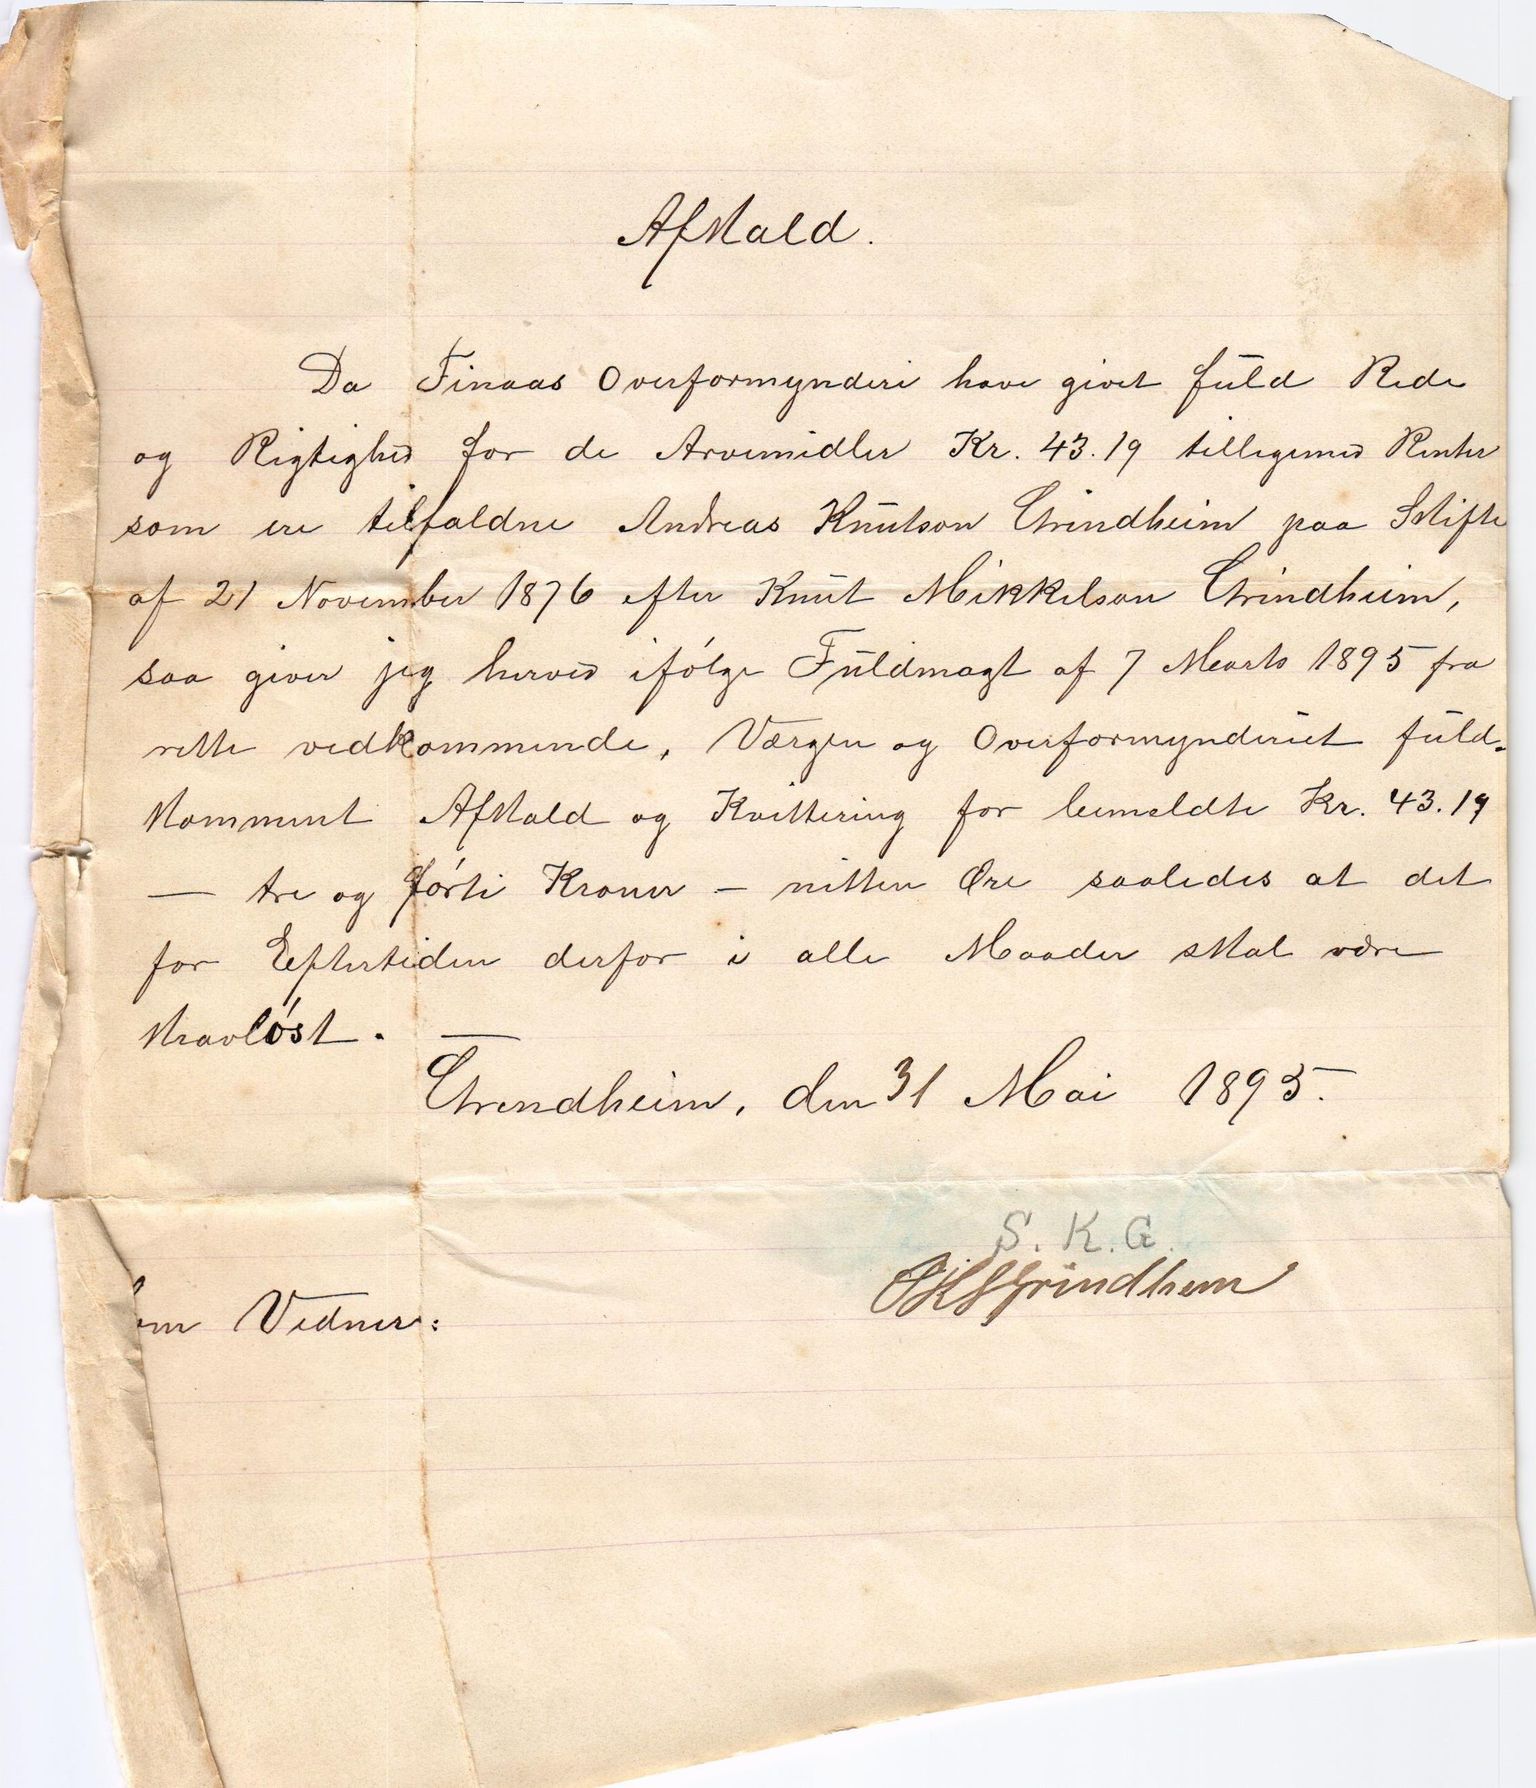 Afkald.
Da Finaas Overformynderi have givet fuld Rede
og Rigtighed for de Arvemidler Kr. 43.19 tilligemed Renter
som ere tilfaldne Andreas Knutson Grindheim paa Skifte
af 21 November 1876 efter Knut Mikkelson Grindheim,
saa giver jeg herved ifólge Fuldmagt af 7 Marts 1895 fra
rette vedkommende, Værgen og Overformynderiet fuld-
komment Afkald og Kvittering for bemeldte Kr. 43.19
— tre og fórti Kroner — nitten Øre saaledes at det
for Eftertiden derfor i alle Maader skal være
kravlóst. —
Grindheim, den 31 Mai 1895.
S. K. G.
Grindhem
om Vidner: